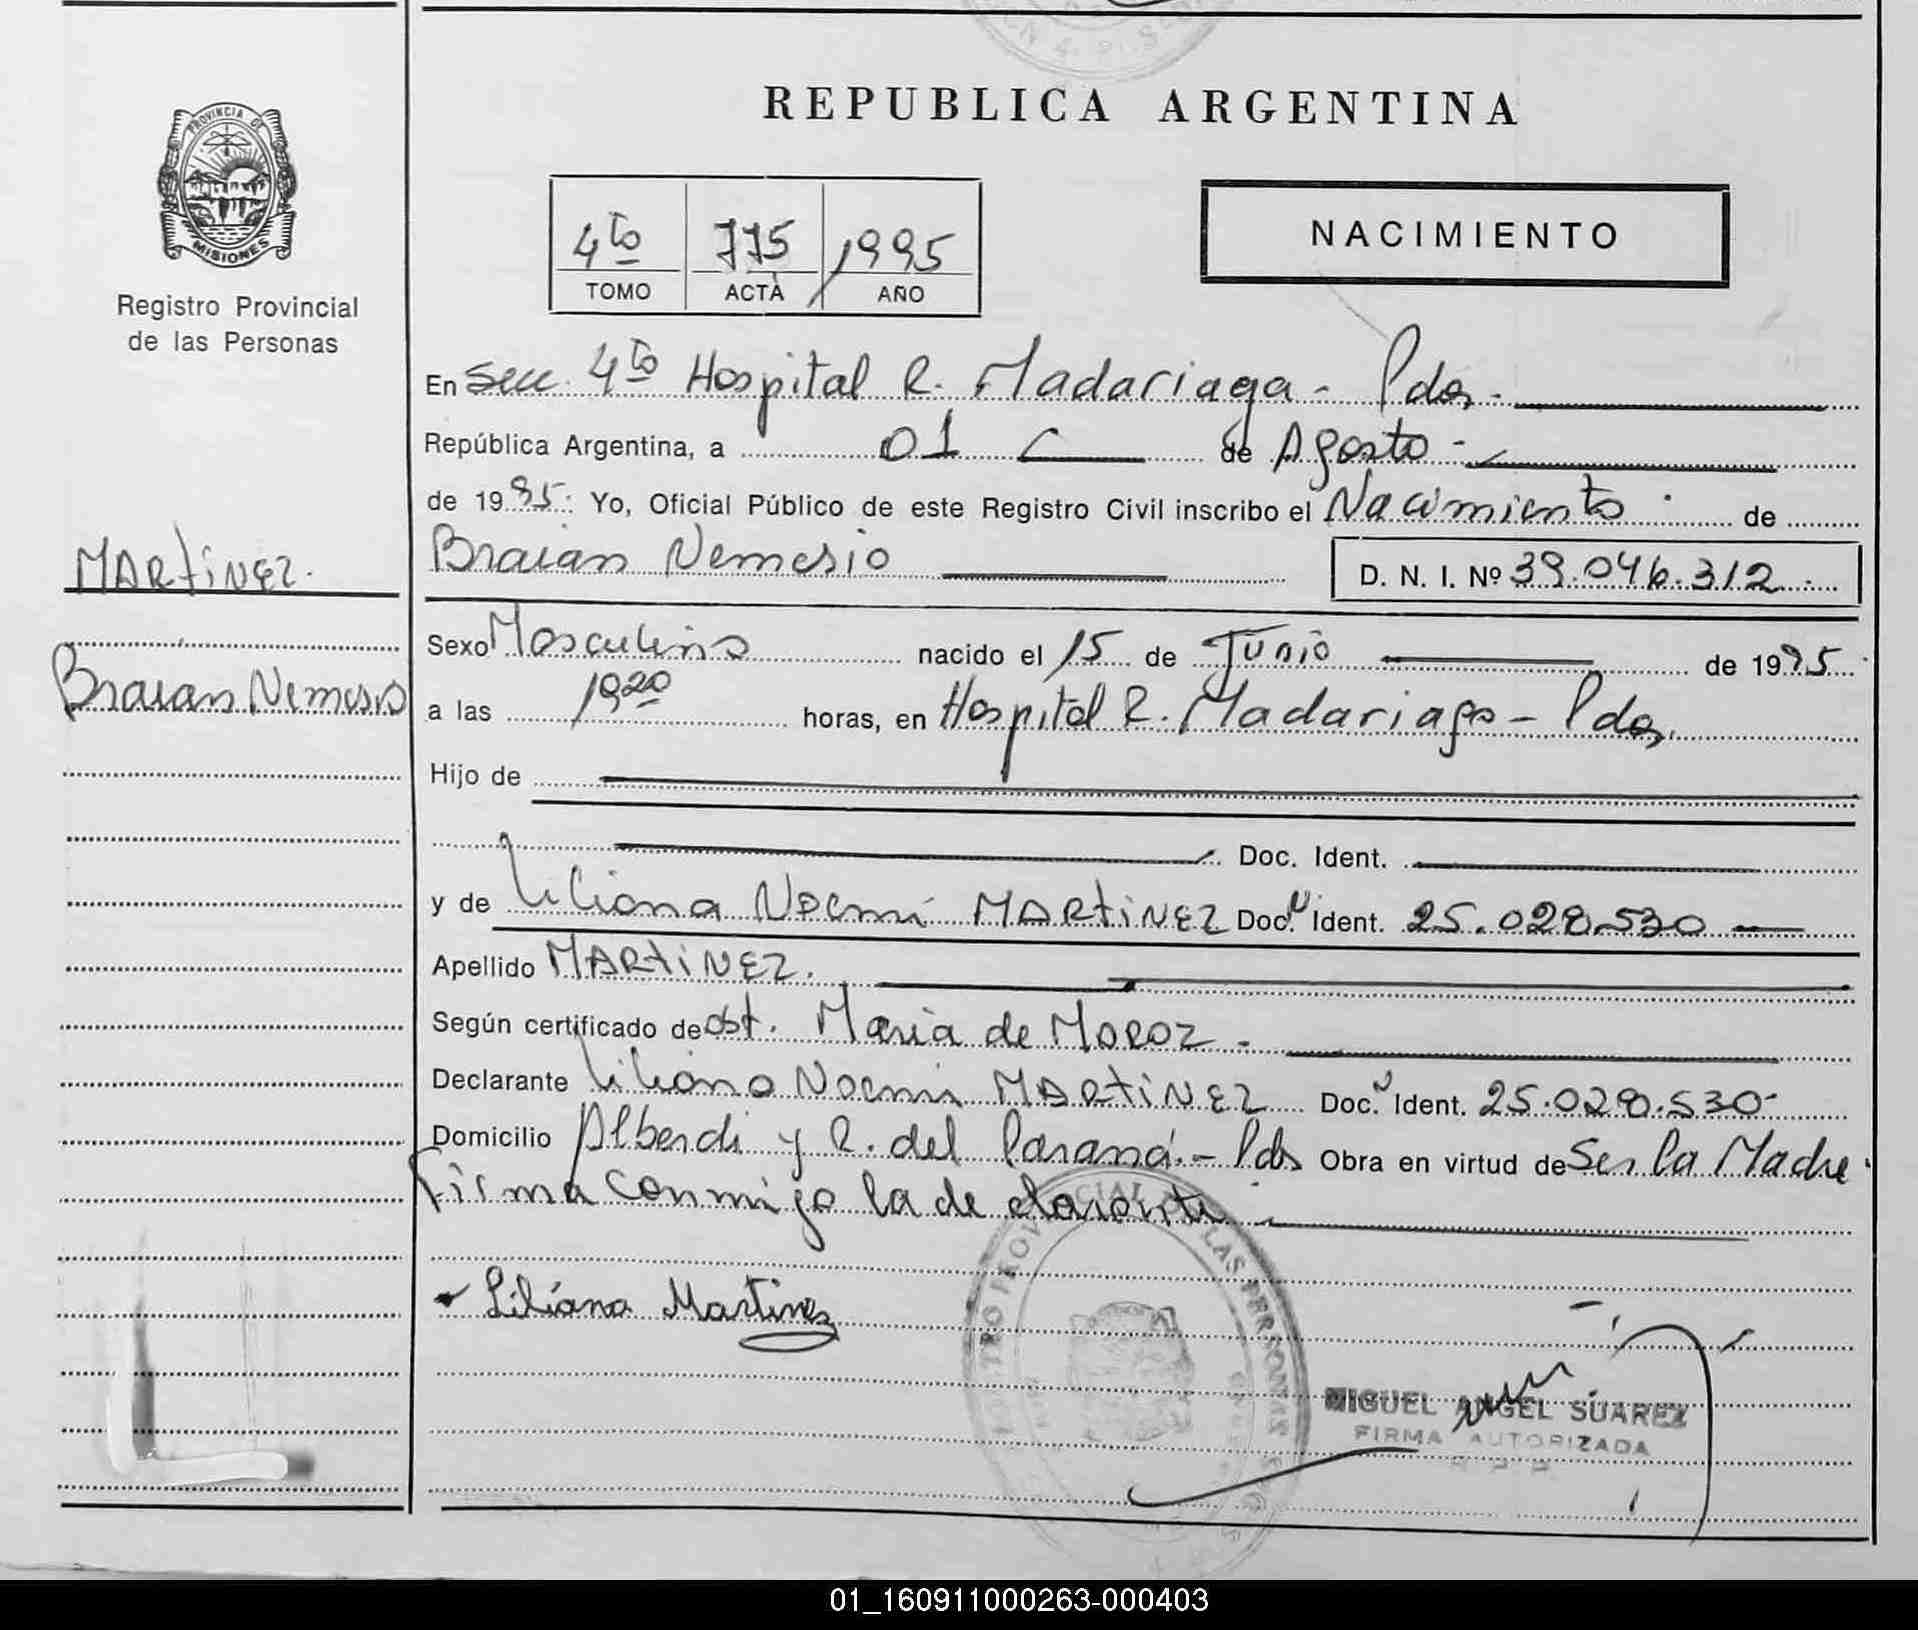 REPUBLICA ARGENTINA
PROVINCIA DE
MISIONES
Registro Provincial
de las Personas
4to 775 1995
TOMO ACTA AÑO
NACIMIENTO
En Secc. 4to Hospital R. Madariaga - Pdas -
República Argentina, a 01 de Agosto -
de 1995. Yo, Oficial Público de este Registro Civil inscribo el Nacimiento de
MARTINEZ.
Braian Nemesio D. N. I. Nº 39.046.312.
Sexo Masculino nacido el 15 de Junio de 1995.
Braian Nemesio
a las 1920 horas, en Hospital R. Madariaga - Pdas.
Hijo de
Doc. Ident.
y de Liliana Noemí MARTINEZ Doc. Ident. 25.028.530
Apellido MARTINEZ.
Según certificado de obt. Maria de MOROZ -
Declarante Liliana Noemi MARTINEZ Doc. Ident. 25.028.530-
Domicilio Alberdi y R. del Paraná.- Pdas Obra en virtud de Ser la Madre.
Firma conmigo la declarante
Liliana Martinez
REGISTRO PROVINCIAL DE LAS PERSONAS
MIGUEL ANGEL SUAREZ
FIRMA AUTORIZADA
01_160911000263-000403